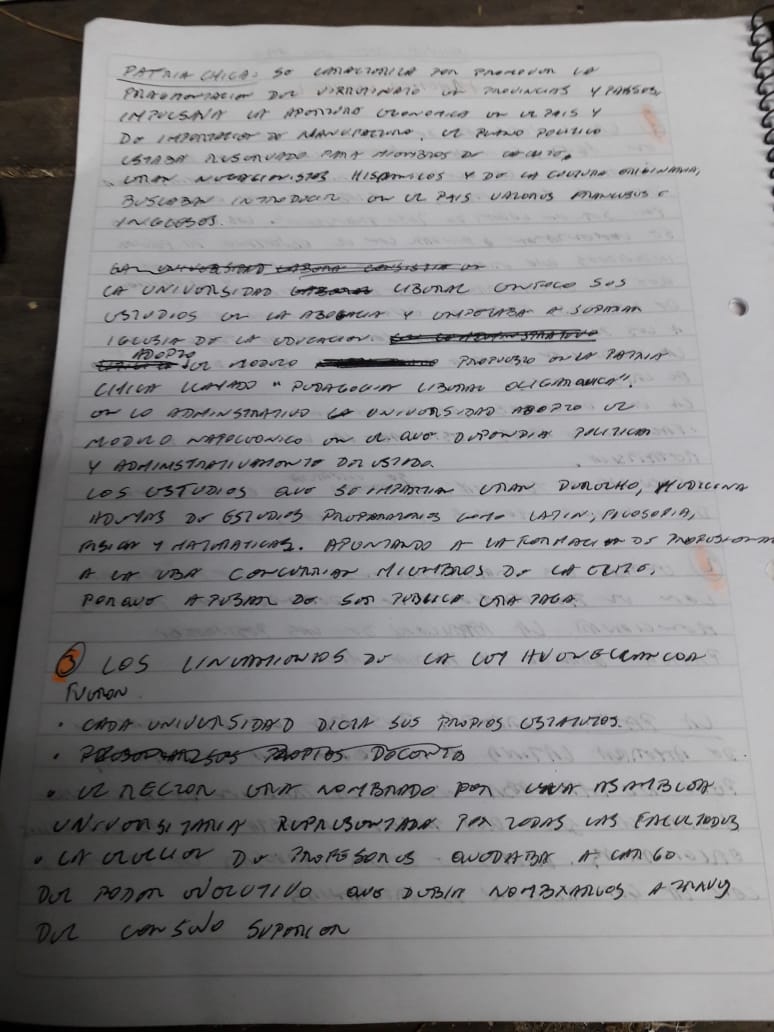 PATRIA CHICA: SE CARACTERIZA POR PROMOVER LA
FRAGMENTACION DEL VIRREINATO EN PROVINCIAS Y PAISES.
IMPULSABA LA APERTURA ECONOMICA EN EL PAIS Y
DE IMPORTACION DE MANUFACTURA. EL PLANO POLITICO
ESTABA RESERVADO PARA MIEMBROS DE LA ELITE.
ERAN NEGACIONISTAS HISPANICOS Y DE LA CULTURA ORIGINARIA,
BUSCABAN INTRODUCIR EN EL PAIS VALORES FRANCESES E
INGLESES.
LA UNIVERSIDAD LIBERAL ENFOCO SUS
ESTUDIOS EN LA ABOGACIA Y EMPEZABA A SEPARAR
IGLESIA DE LA EDUCACION.
ADOPTO EL MODELO PROPUESTO EN LA PATRIA
CHICA LLAMADO "PEDAGOGIA LIBERAL OLIGARQUICA".
EN LO ADMINISTRATIVO LA UNIVERSIDAD ADOPTO EL
MODELO NAPOLEONICO EN EL QUE DEPENDIA POLITICA
Y ADMINISTRATIVAMENTE DEL ESTADO.
LOS ESTUDIOS QUE SE IMPARTIA ERAN DERECHO, MEDICINA
ADEMAS DE ESTUDIOS PREPARATORIOS COMO LATIN, FILOSOFIA,
FISICA Y MATEMATICAS. APUNTANDO A LA FORMACION DE PROFESIONALES
A LA UBA CONCURRIAN MIEMBROS DE LA ELITE,
PORQUE A PESAR DE SER PUBLICA ERA PAGA.
3 LOS LINEAMIENTOS DE LA LEY AVELLANEDA
FUERON
• CADA UNIVERSIDAD DICTA SUS PROPIOS ESTATUTOS.
•
• EL RECTOR ERA NOMBRADO POR UNA ASAMBLEA
UNIVERSITARIA REPRESENTADA POR TODAS LAS FACULTADES
• LA ELECCION DE PROFESORES QUEDABA A CARGO
DEL PODER EJECUTIVO QUE DEBIA NOMBRARLOS A TRAVES
DEL CONSEJO SUPERIOR